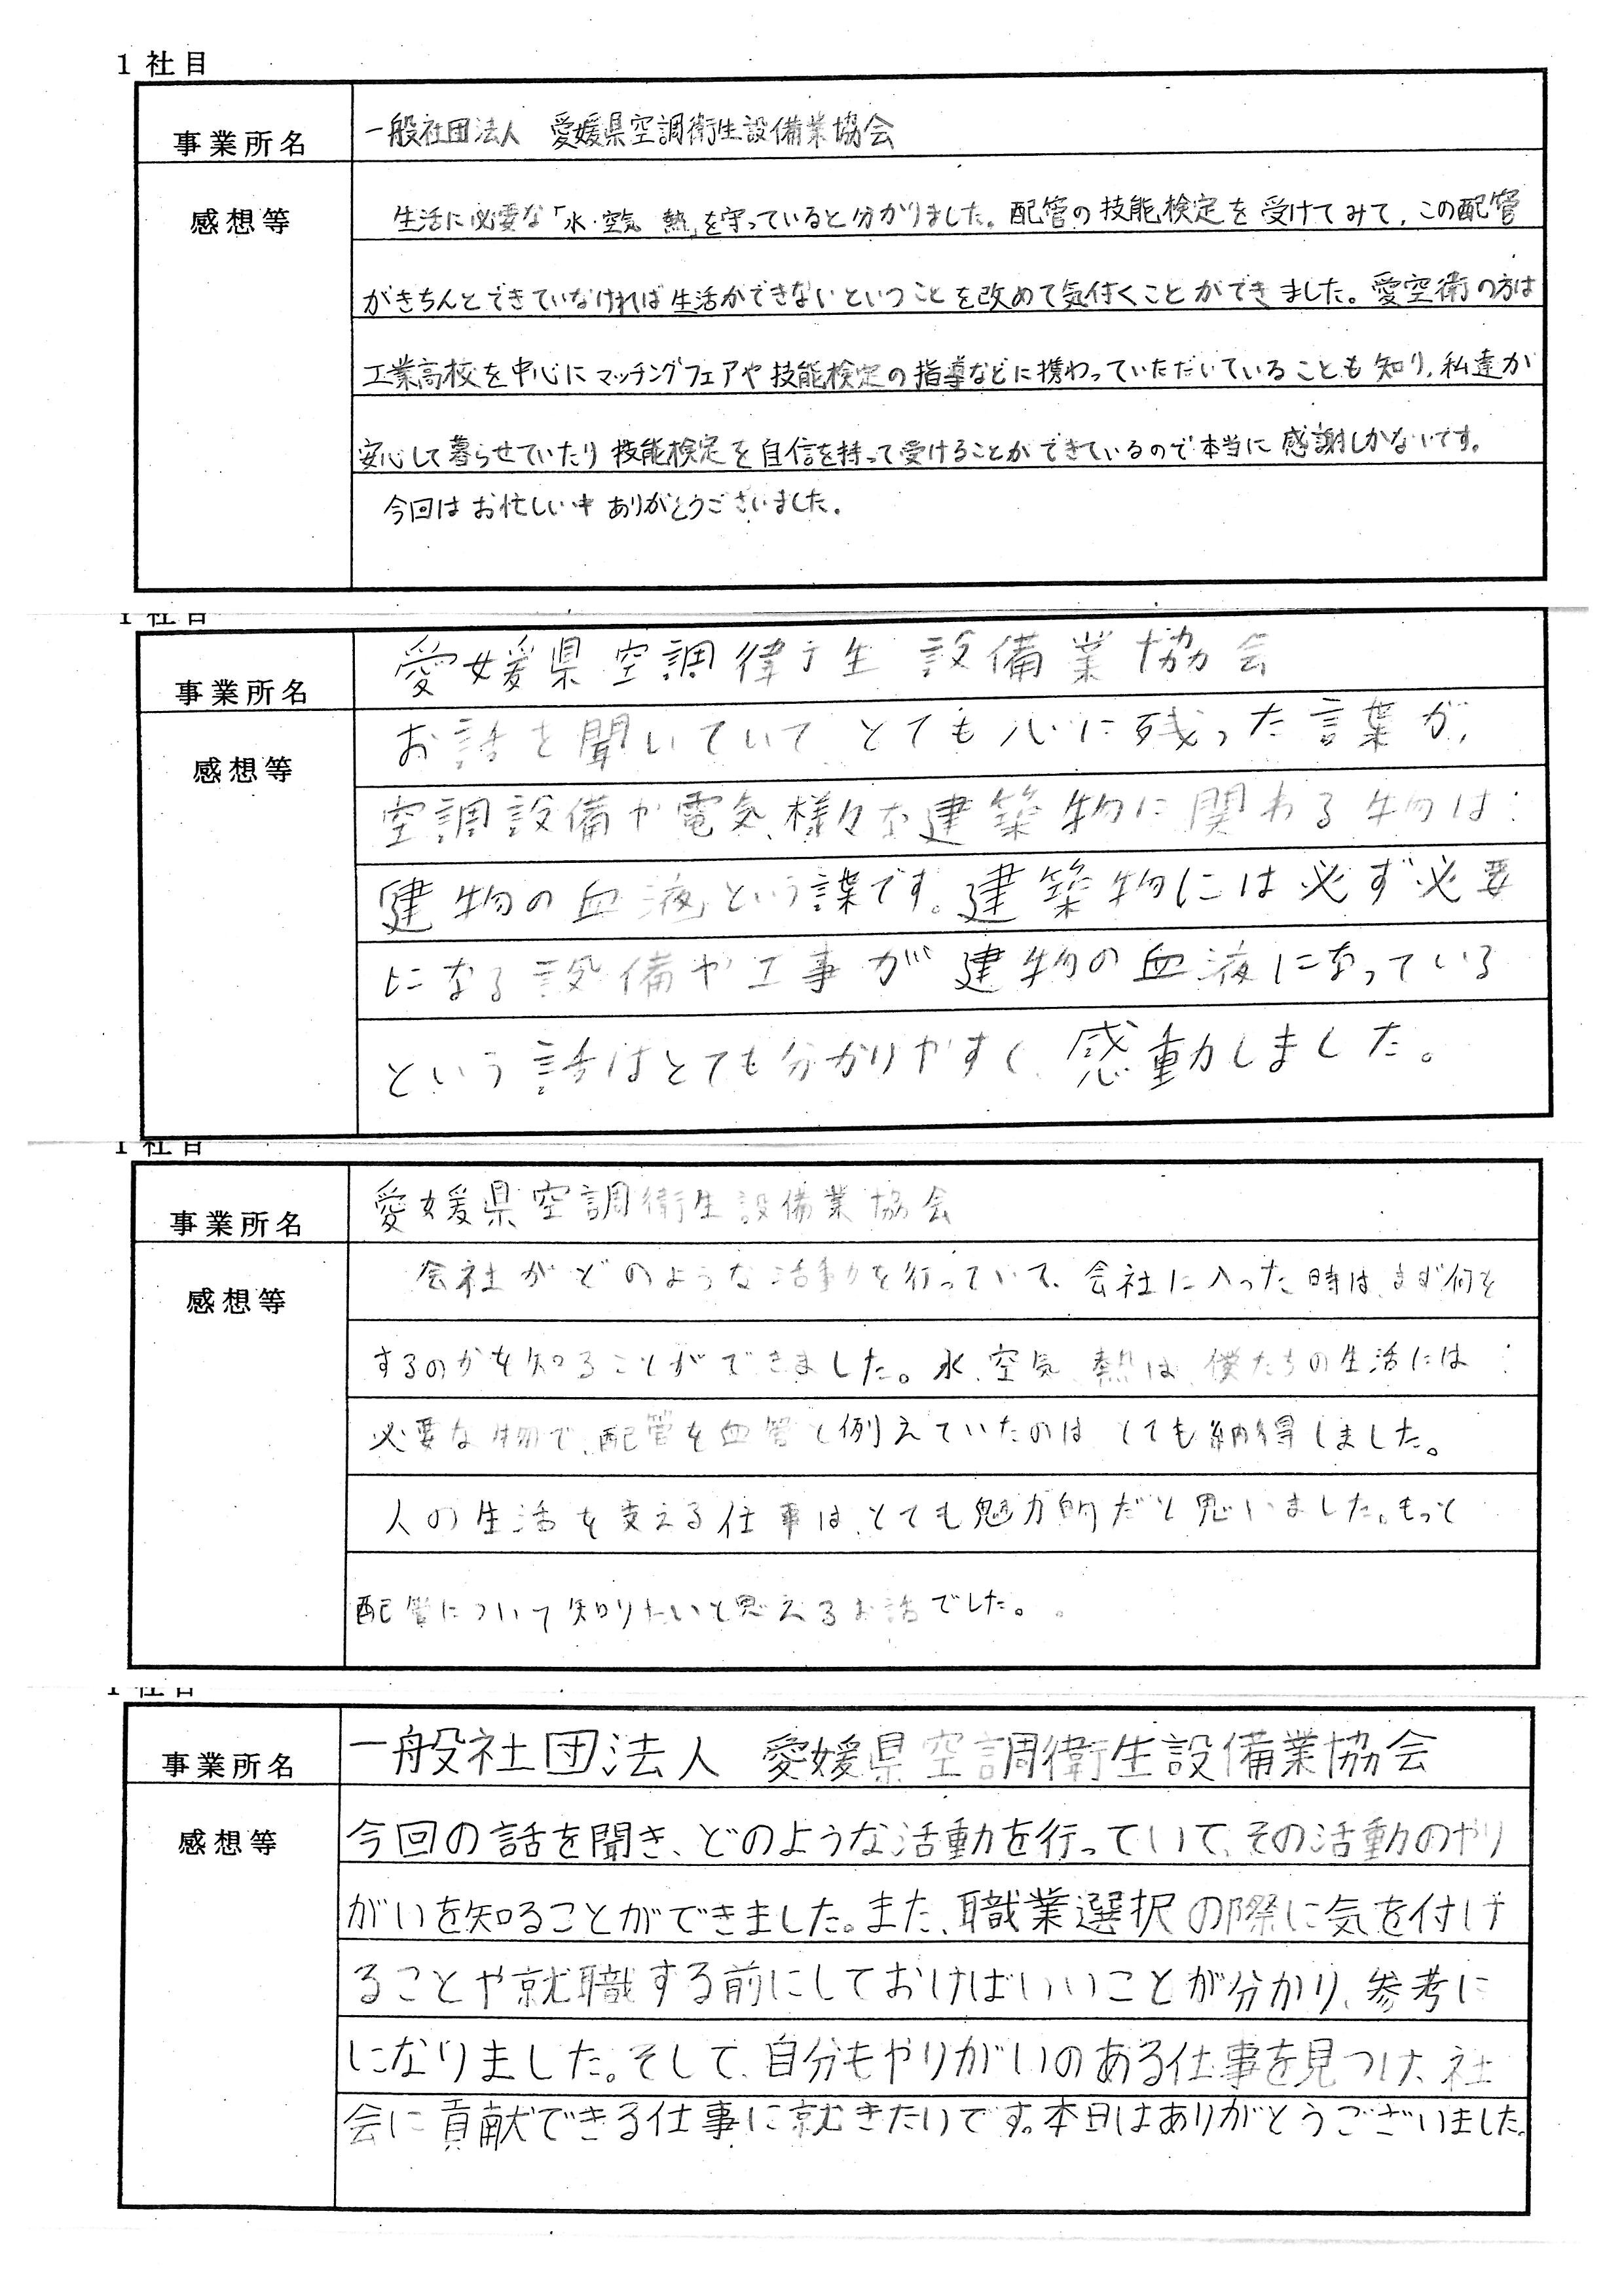 1 社目
事業所名
一般社団法人 愛媛県空調衛生設備業協会
感想等
生活に必要な「水・空気 熱」を守っていると分かりました。配管の技能検定を受けてみて,この配管
がきちんとできていなければ生活ができないということを改めて気付くことができました。愛空衛の方は
工業高校を中心にマッチングフェアや技能検定の指導などに携わっていただいていることも知り,私達が
安心して暮らせていたり技能検定を自信を持って受けることができているので本当に感謝しかないです。
今回はお忙しい中ありがとうございました。
1 社目
事業所名
愛媛県空調衛生設備業協会
感想等
お話を聞いていてとても心に残った言葉が,
空調設備や電気、様々な建築物に関わる物は
建物の血液という話です。建築物には必ず必要
になる設備や工事が建物の血液になっている
という話はとても分かりやすく、感動しました。
1 社目
事業所名
愛媛県空調衛生設備業協会
感想等
会社がどのような活動を行っていて、会社に入った時は、まず何を
するのかを知ることができました。水、空気、熱は、僕たちの生活には
必要な物で、配管を血管と例えていたのはとても納得しました。
人の生活を支える仕事は、とても魅力的だと思いました。もっと
配管について知りたいと思えるお話でした。
1 社目
事業所名
一般社団法人 愛媛県空調衛生設備業協会
感想等
今回の話を聞き、どのような活動を行っていて、その活動のやり
がいを知ることができました。また、職業選択の際に気を付け
ることや就職する前にしておけばいいことが分かり、参考に
になりました。そして、自分もやりがいのある仕事を見つけ、社
会に貢献できる仕事に就きたいです。本日はありがとうございました。